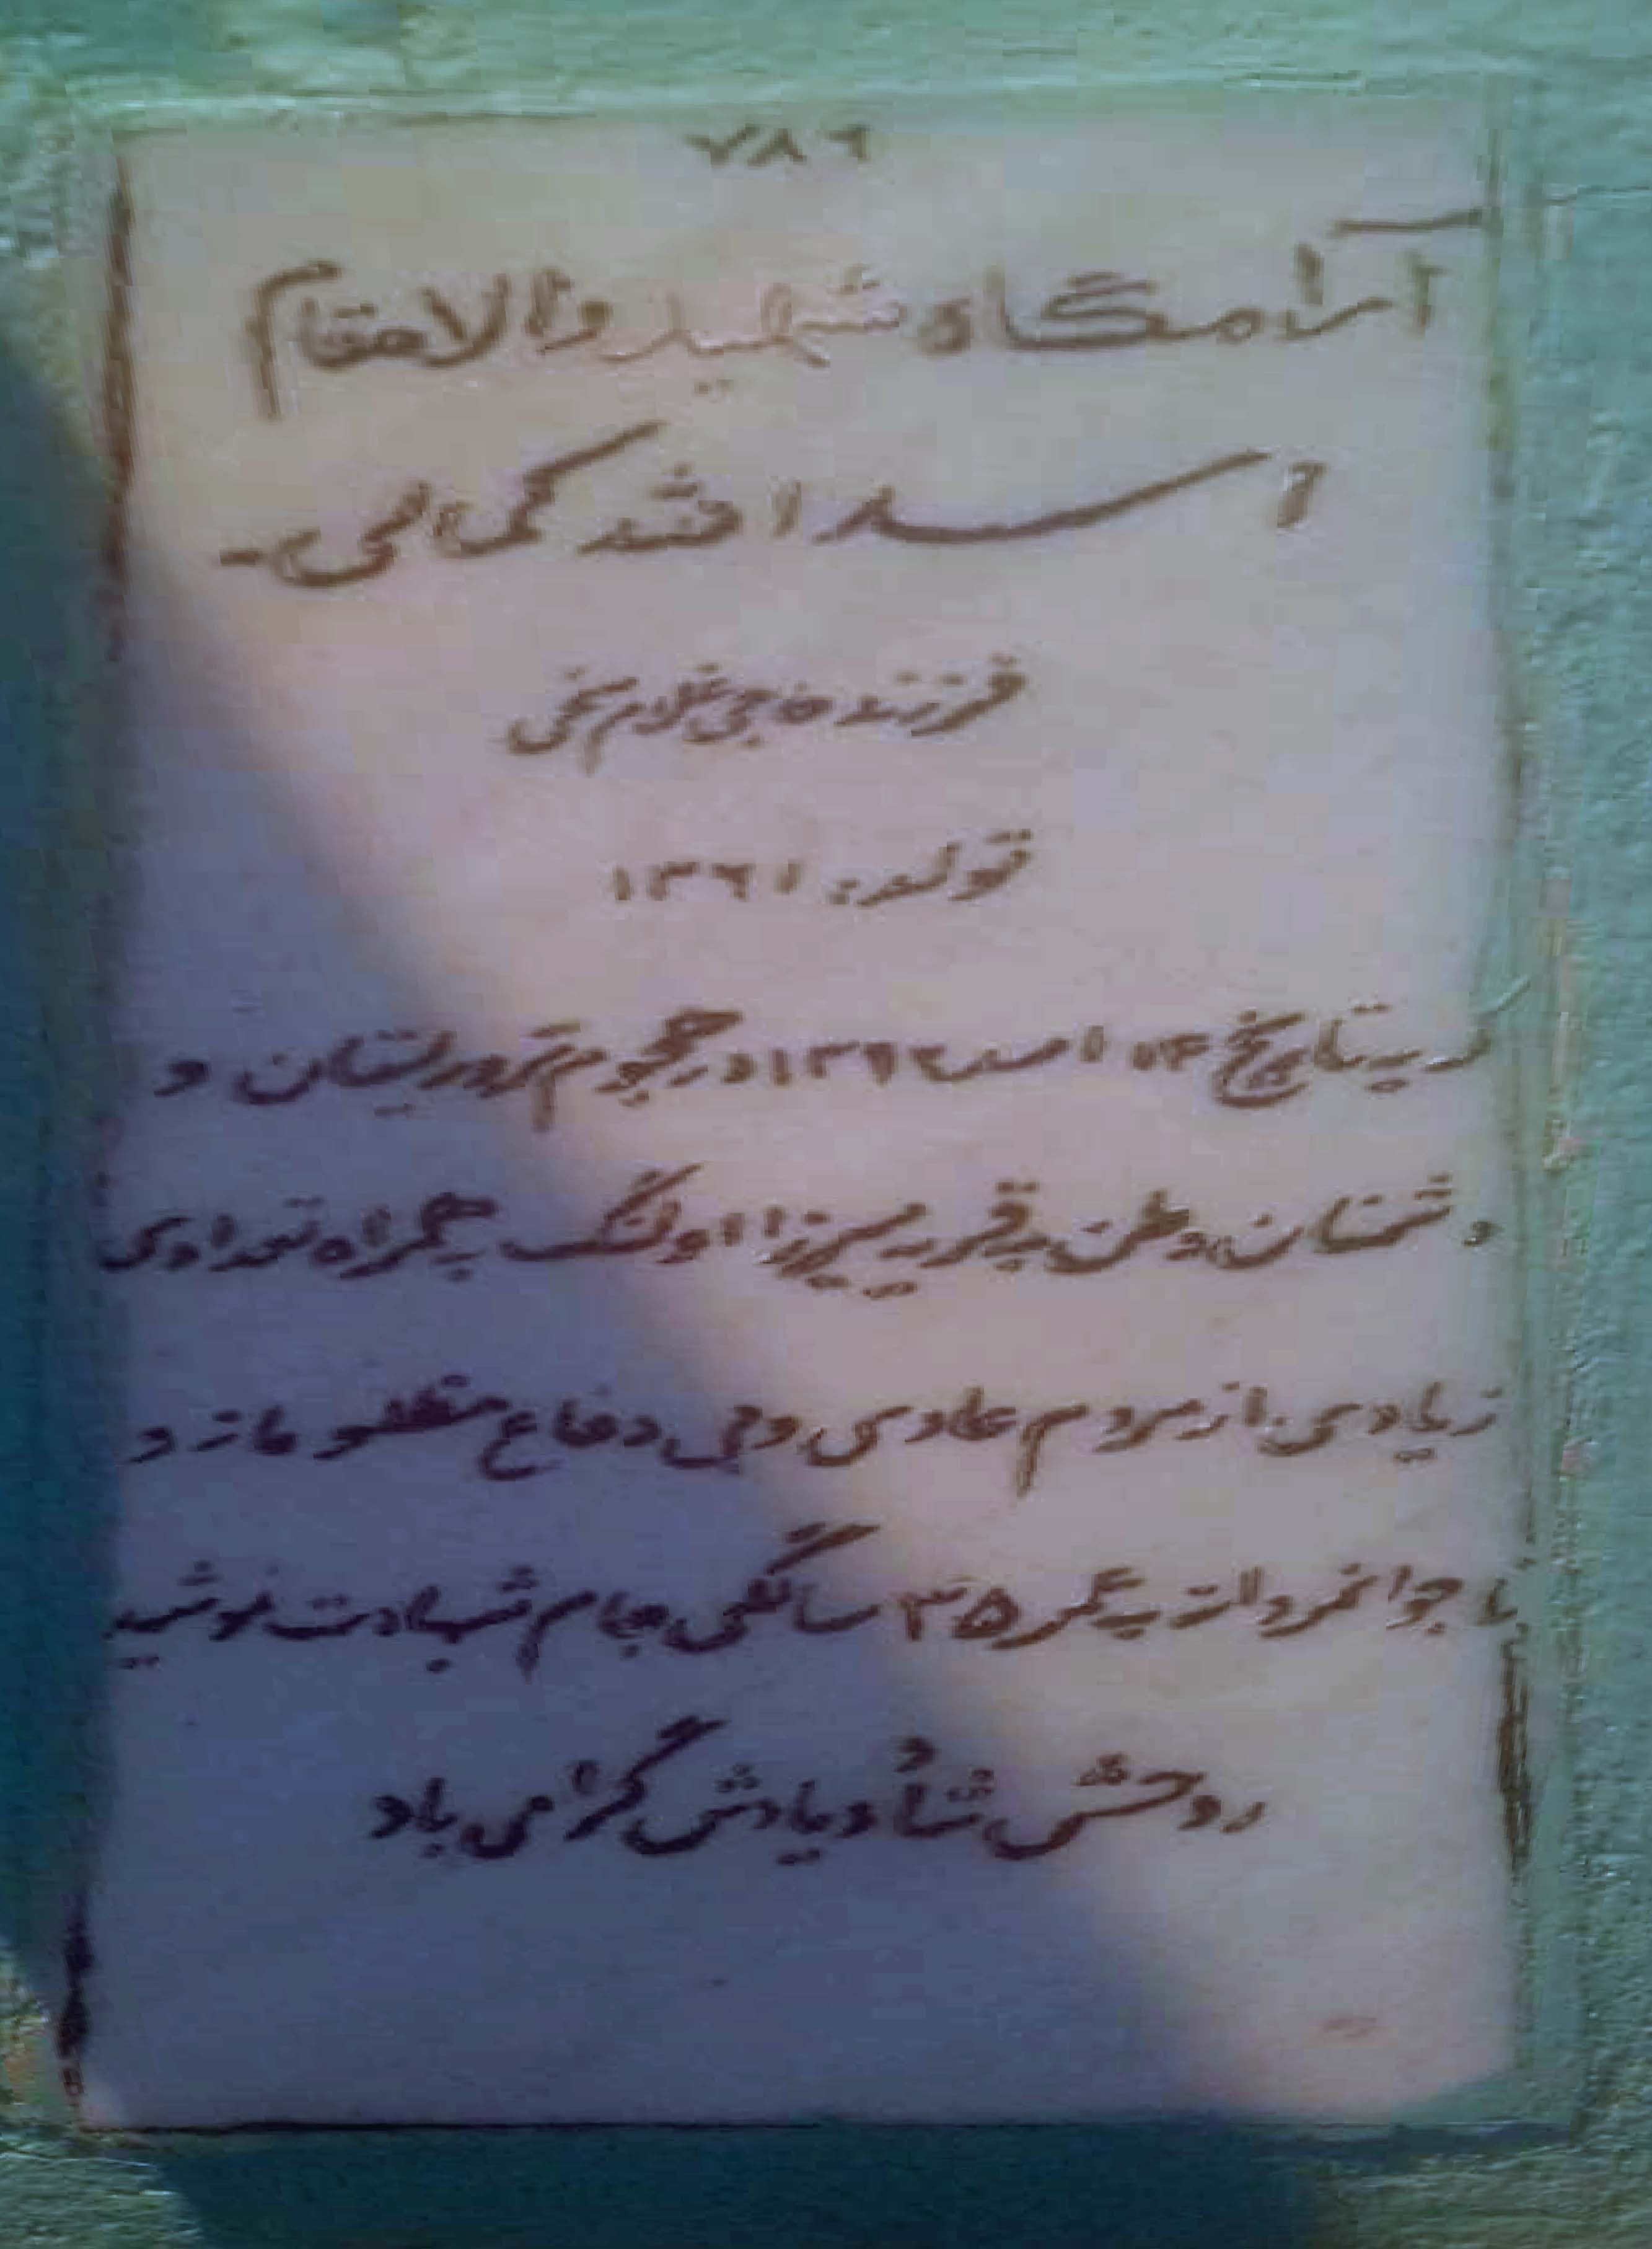 ۷۸۶
آرامگاه شهید والامقام
اسدالله کمالی
فرزند حاجی غلام سخی
تولد: ۱۳۶۱
که به تاریخ ۱۴ اسد ۱۳۹۶ در هجوم تروریستان و
دشمنان وطن به قریه میرزا اولنگ به همراه تعدادی
زیادی از مردم عادی وبی دفاع مظلومانه و
نا جوانمردانه به عمر ۳۵ سالگی جام شهادت نوشید
روحش شاد و یادش گرامی باد